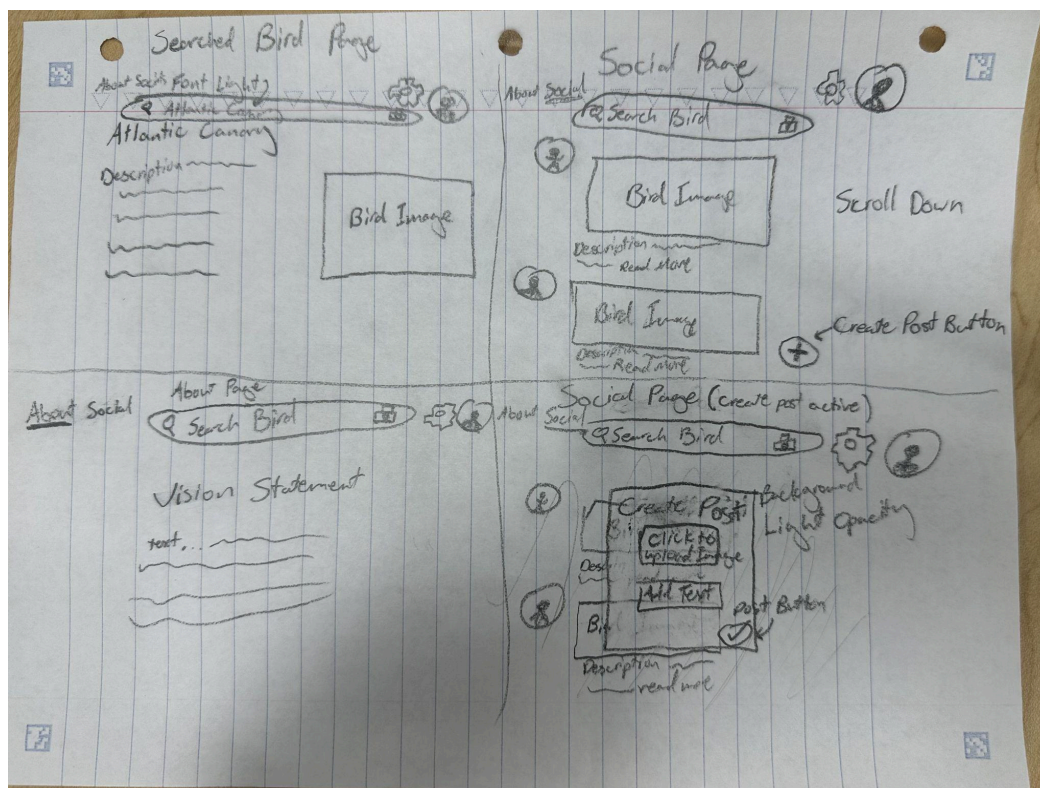 Searched Bird Page
About Social Font Light
Atlantic Canary
Atlantic Canary
Description
Bird Image
Social Page
About Social
Search Bird
Bird Image
Scroll Down
Description
Read More
Bird Image
Create Post Button
Description
Read more
About Page
About Social
Search Bird
Vision Statement
text...
Social Page (create post active)
About Social
Search Bird
Create Post
Background
Light Opacity
Click to
upload Image
Bi
Desc
Add Text
Post Button
Bi
Description
read more